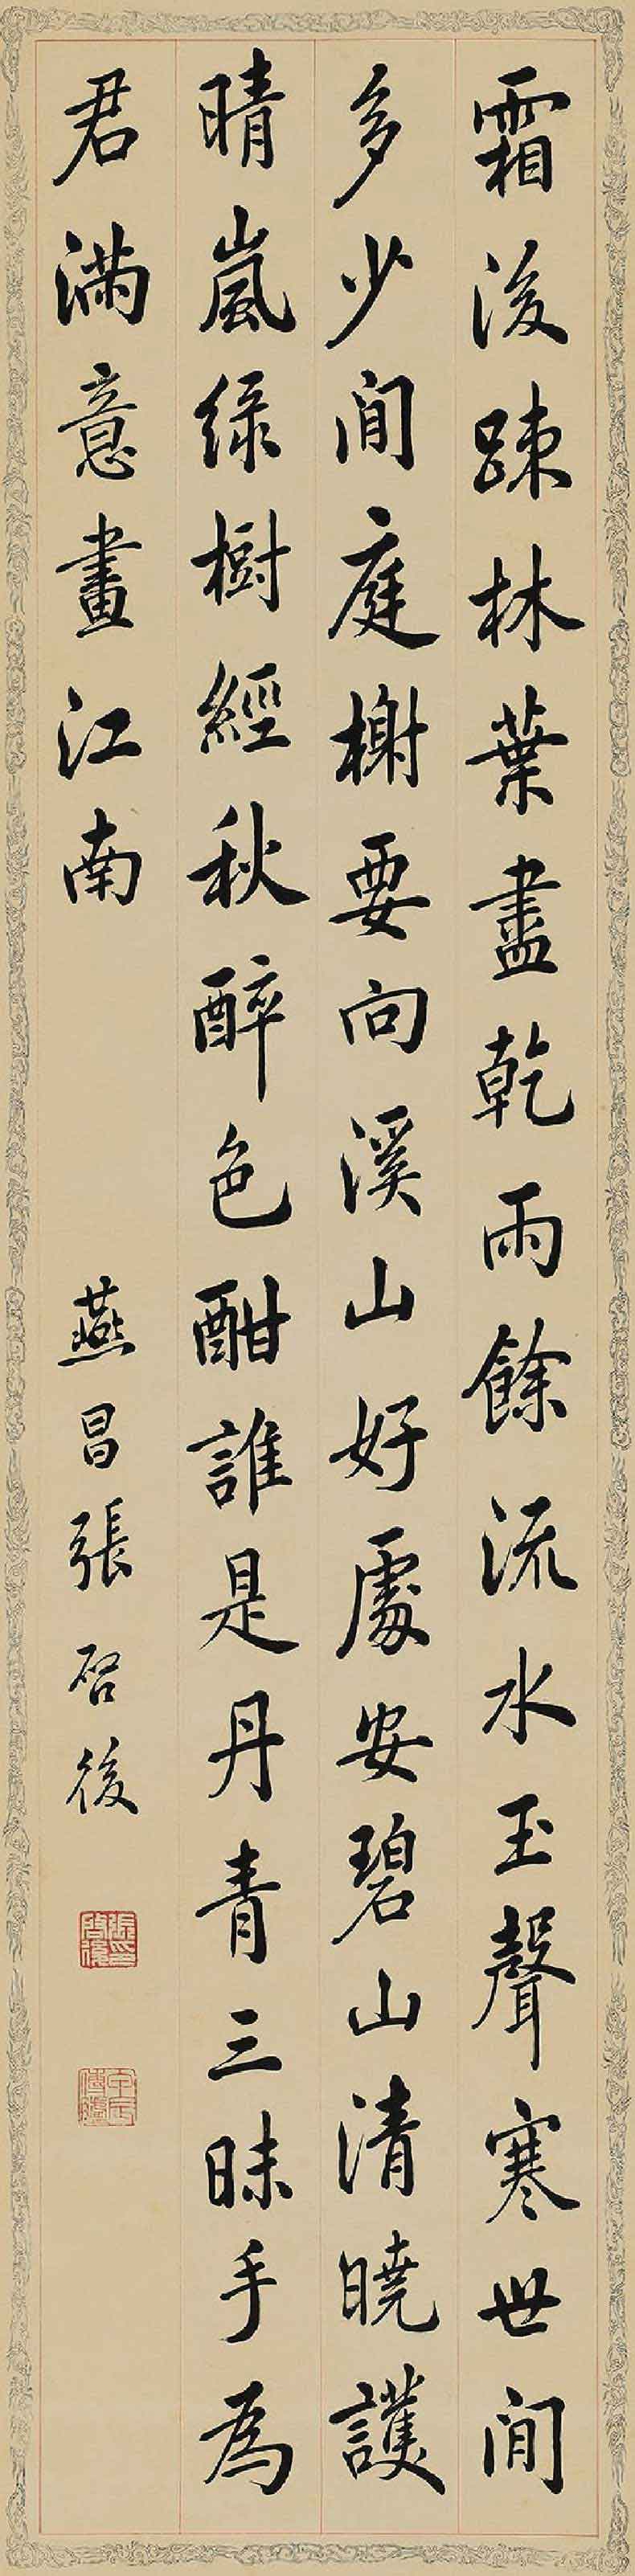 霜後踈林葉盡乾雨餘流水玉聲寒世間
多少閒庭榭要向溪山好處安碧山清曉護
晴嵐綠樹經秋醉色酣誰是丹青三昧手為
君滿意畫江南
燕昌張啓後
張印啓後
甲辰傳臚